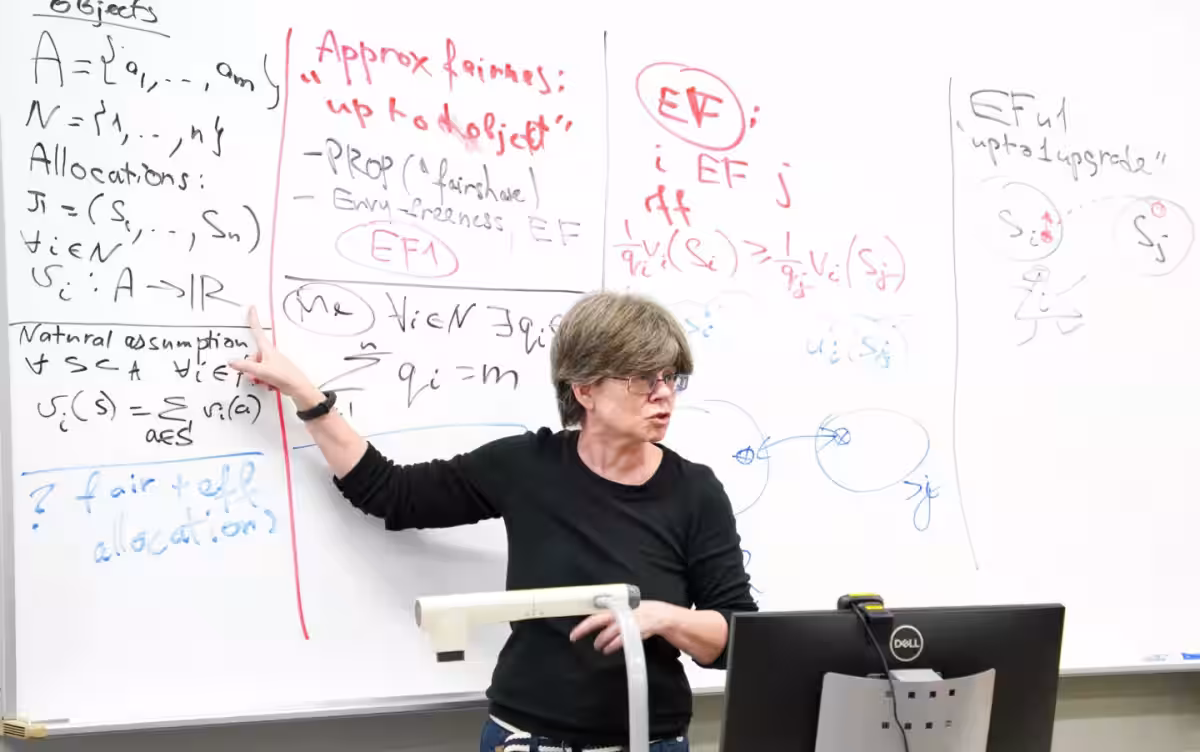 Objects
A = {a₁, ..., aₘ}
N = {1, ..., n}
Allocations:
π = (S₁, ..., Sₙ)
∀i∈N
vᵢ : A → IR
Natural assumption
∀ S⊂A ∀i∈
vᵢ(S) = Σ vᵢ(a)
a∈S
? fair + eff
allocation?
Approx fairnes:
"up to 1 object"
- PROP ("fairshare)
- Envy-freeness, EF
EF1
∀i∈N ∃qᵢ
Σ qᵢ = m
n
EF :
i EF j
iff
1/qᵢ vᵢ(Sᵢ) ≥ 1/qⱼ vᵢ(Sⱼ)
uᵢ(Sⱼ)
j
EFu1
"up to 1 upgrade"
Sᵢ
Sⱼ
i
DELL